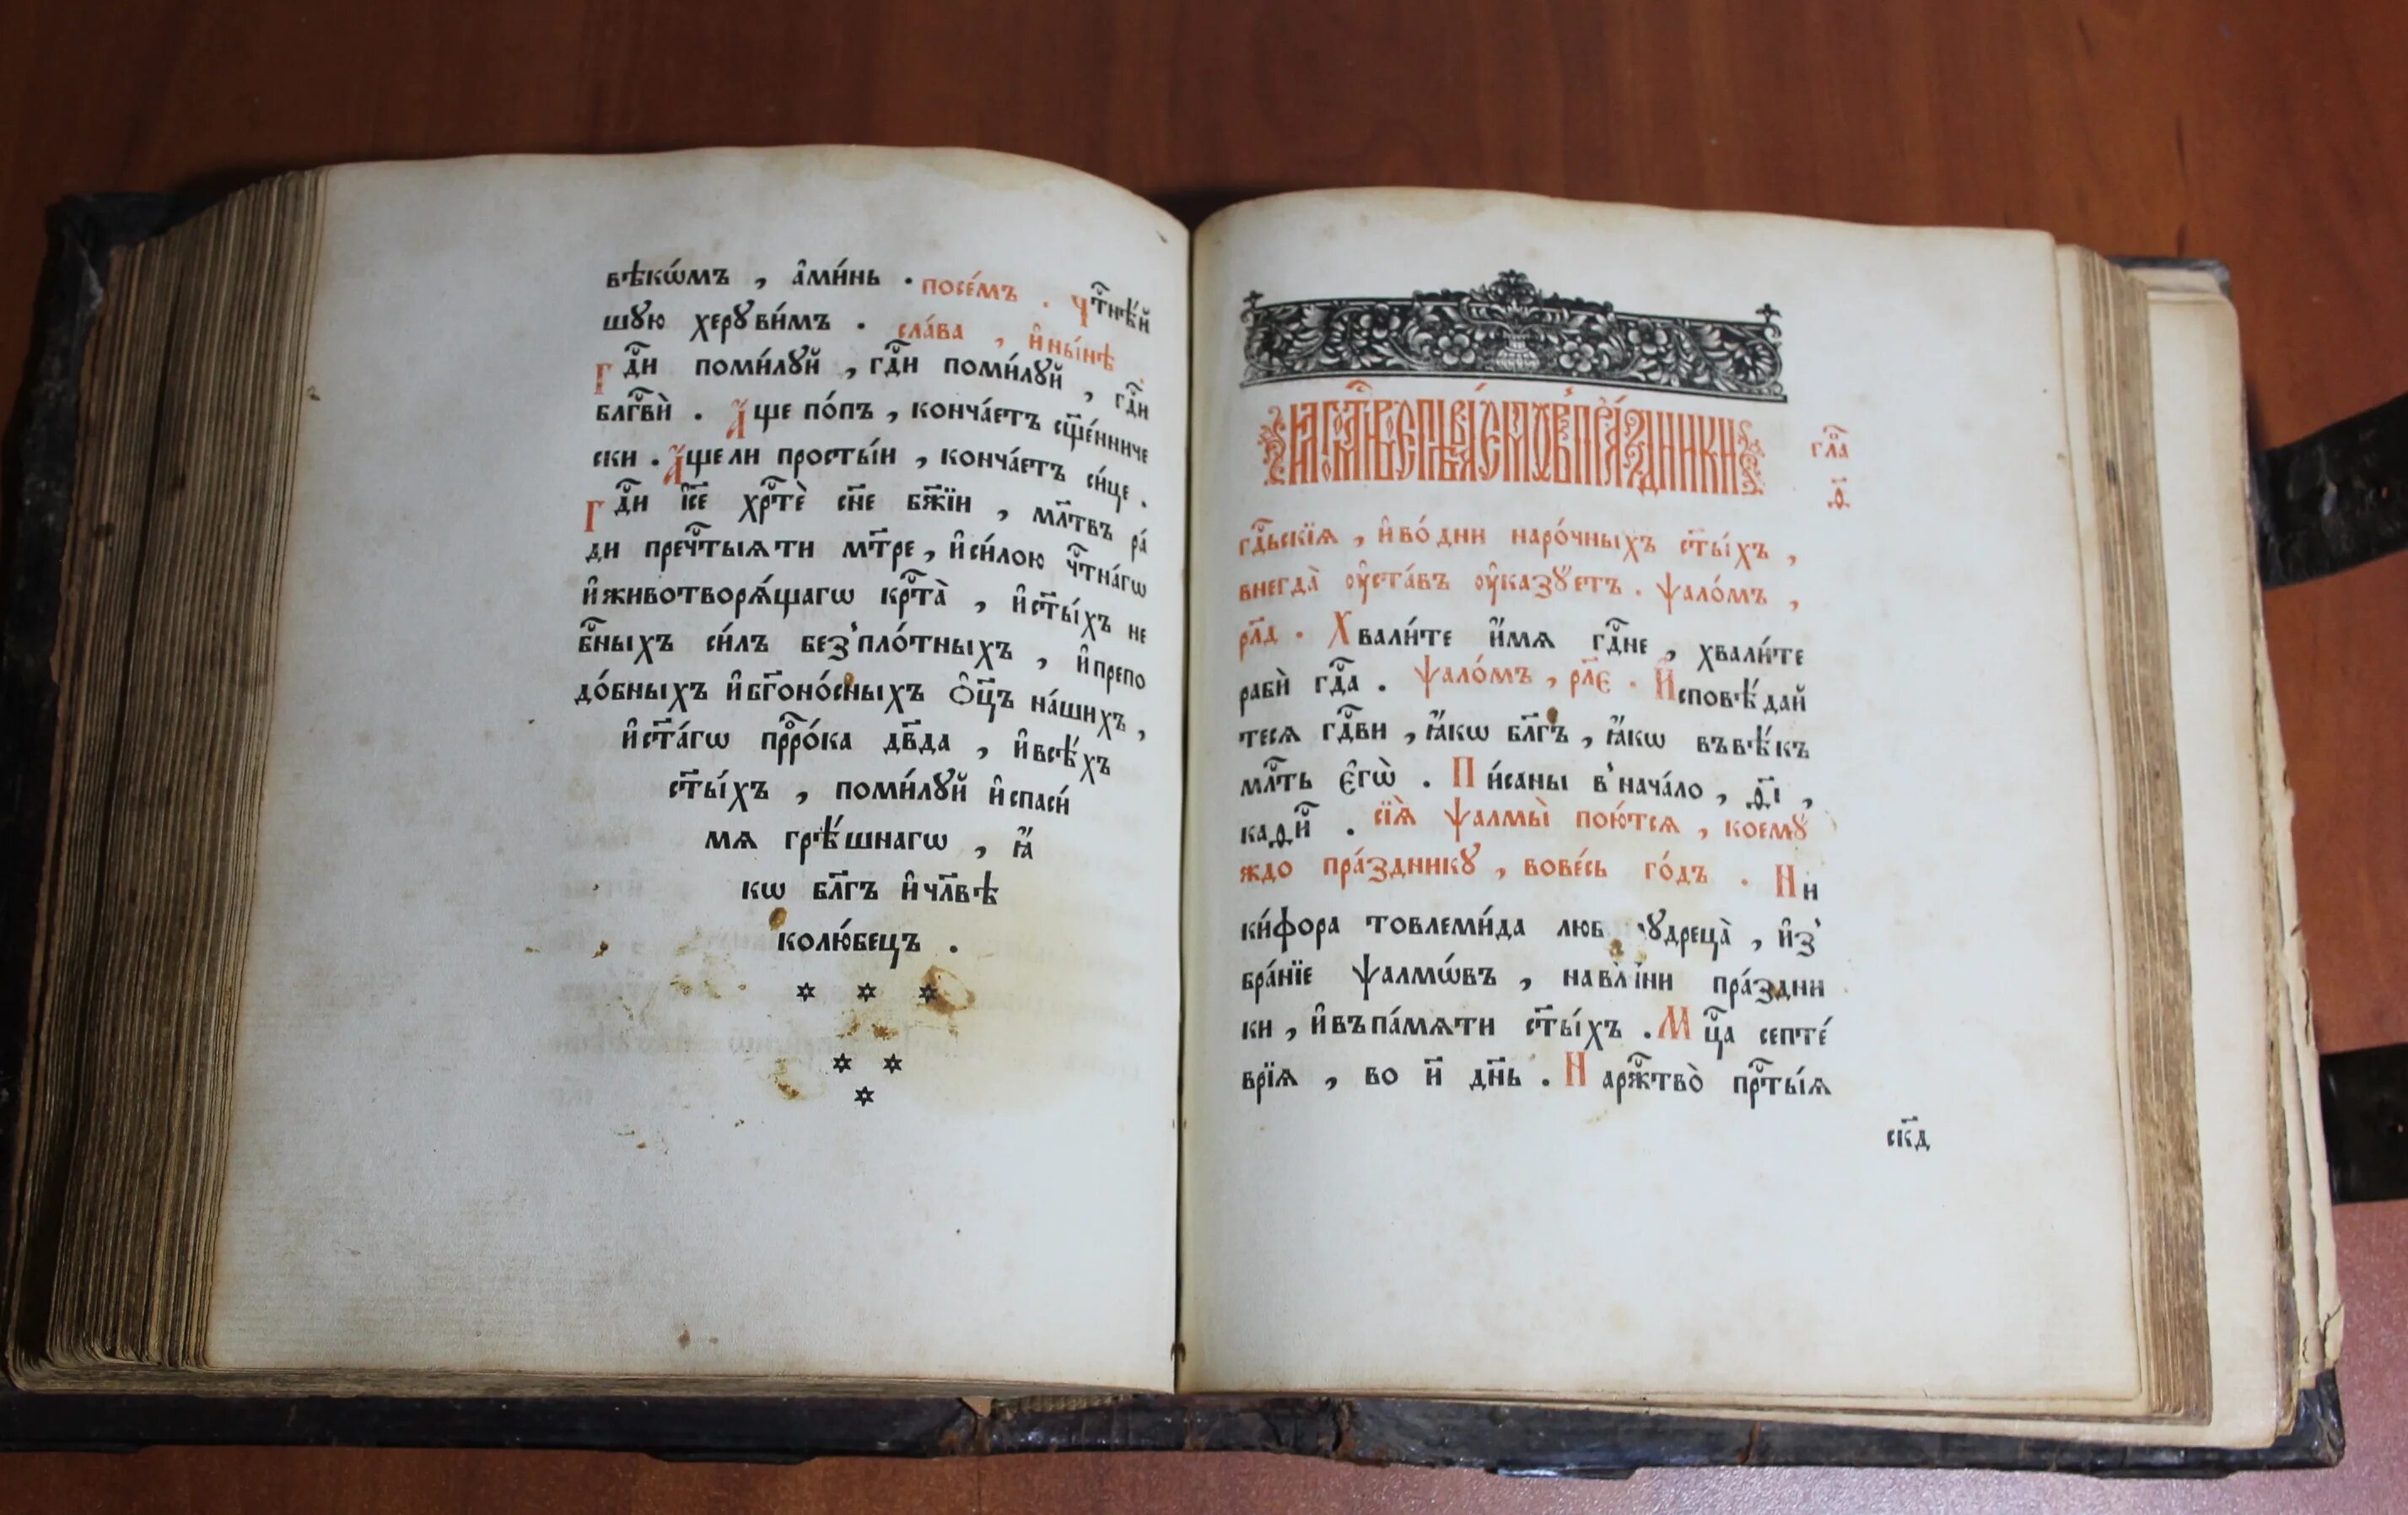 вѣкѡ́мъ , а҆ми́нь . посе́мъ . Чⷭ҇тнѣ́й
шꙋю херꙋви́мъ . сла́ва , и҆ ны́нѣ .
Гдⷭ҇и поми́лꙋй , гдⷭ҇и поми́лꙋй , гдⷭ҇и
блгⷭ҇вѝ . А҆́ще по́пъ , конча́етъ сщ҃е́нниче
ски . А҆́ще ли просты́и , конча́етъ си́це .
Гдⷭ҇и і҆с҃е хрⷭ҇тѐ сн҃е бж҃їи , мл҃твъ ра́
ди пречⷭ҇тыѧ ти мт҃ре , и҆ си́лою чⷭ҇тна́гѡ
и҆ животворѧ́щагѡ крⷭ҇та̀ , и҆ ст҃ы́хъ не
бⷭ҇ныхъ си́лъ без̾пло́тныхъ , и҆ препо
до́бныхъ и҆ бг҃оно́сныхъ ѻ҆ц҃ъ на́шихъ ,
и҆ ст҃а́гѡ прⷪ҇ро́ка дв҃да , и҆ всѣ́хъ
ст҃ы́хъ , поми́лꙋй и҆ спаси́
мѧ грѣ́шнагѡ , ꙗ҆́
кѡ бл҃гъ и҆ чл҃вѣ
колю́бецъ .
гла
ѳ҃
гдⷭ҇ьскїѧ , и҆ во́ дни наро́чныхъ ст҃ы́хъ ,
внегда̀ ᲂу҆ста́въ ᲂу҆ка́зꙋетъ . ѱало́мъ ,
рл҃д . Хвали́те и҆́мѧ гдⷭ҇не , хвали́те
рабѝ гдⷭ҇а . ѱало́мъ , рл҃є . И҆сповѣ́дай
тесѧ гдⷭ҇ви , ꙗ҆́кѡ бл҃гъ , ꙗ҆́кѡ въ вѣ́къ
млⷭ҇ть є҆гѡ̀ . Пи́саны в̾ нача́ло , ѳ҃і ,
каѳи́ⷭ . сїѧ̀ ѱалмы̀ пою́тсѧ , коемꙋ
ждо пра́здникꙋ , во ве́сь го́дъ . Ни
ки́фора товлеми́да , и҆з̾
бра́нїе ѱалмѡ́въ , на пра́здни
ки , и҆ въ па́мѧти ст҃ы́хъ . Мцⷭ҇а септе́
врїѧ , во и҃ дн҃ь . На ржⷭ҇тво̀ прⷭ҇ты́ѧ
ск҃д